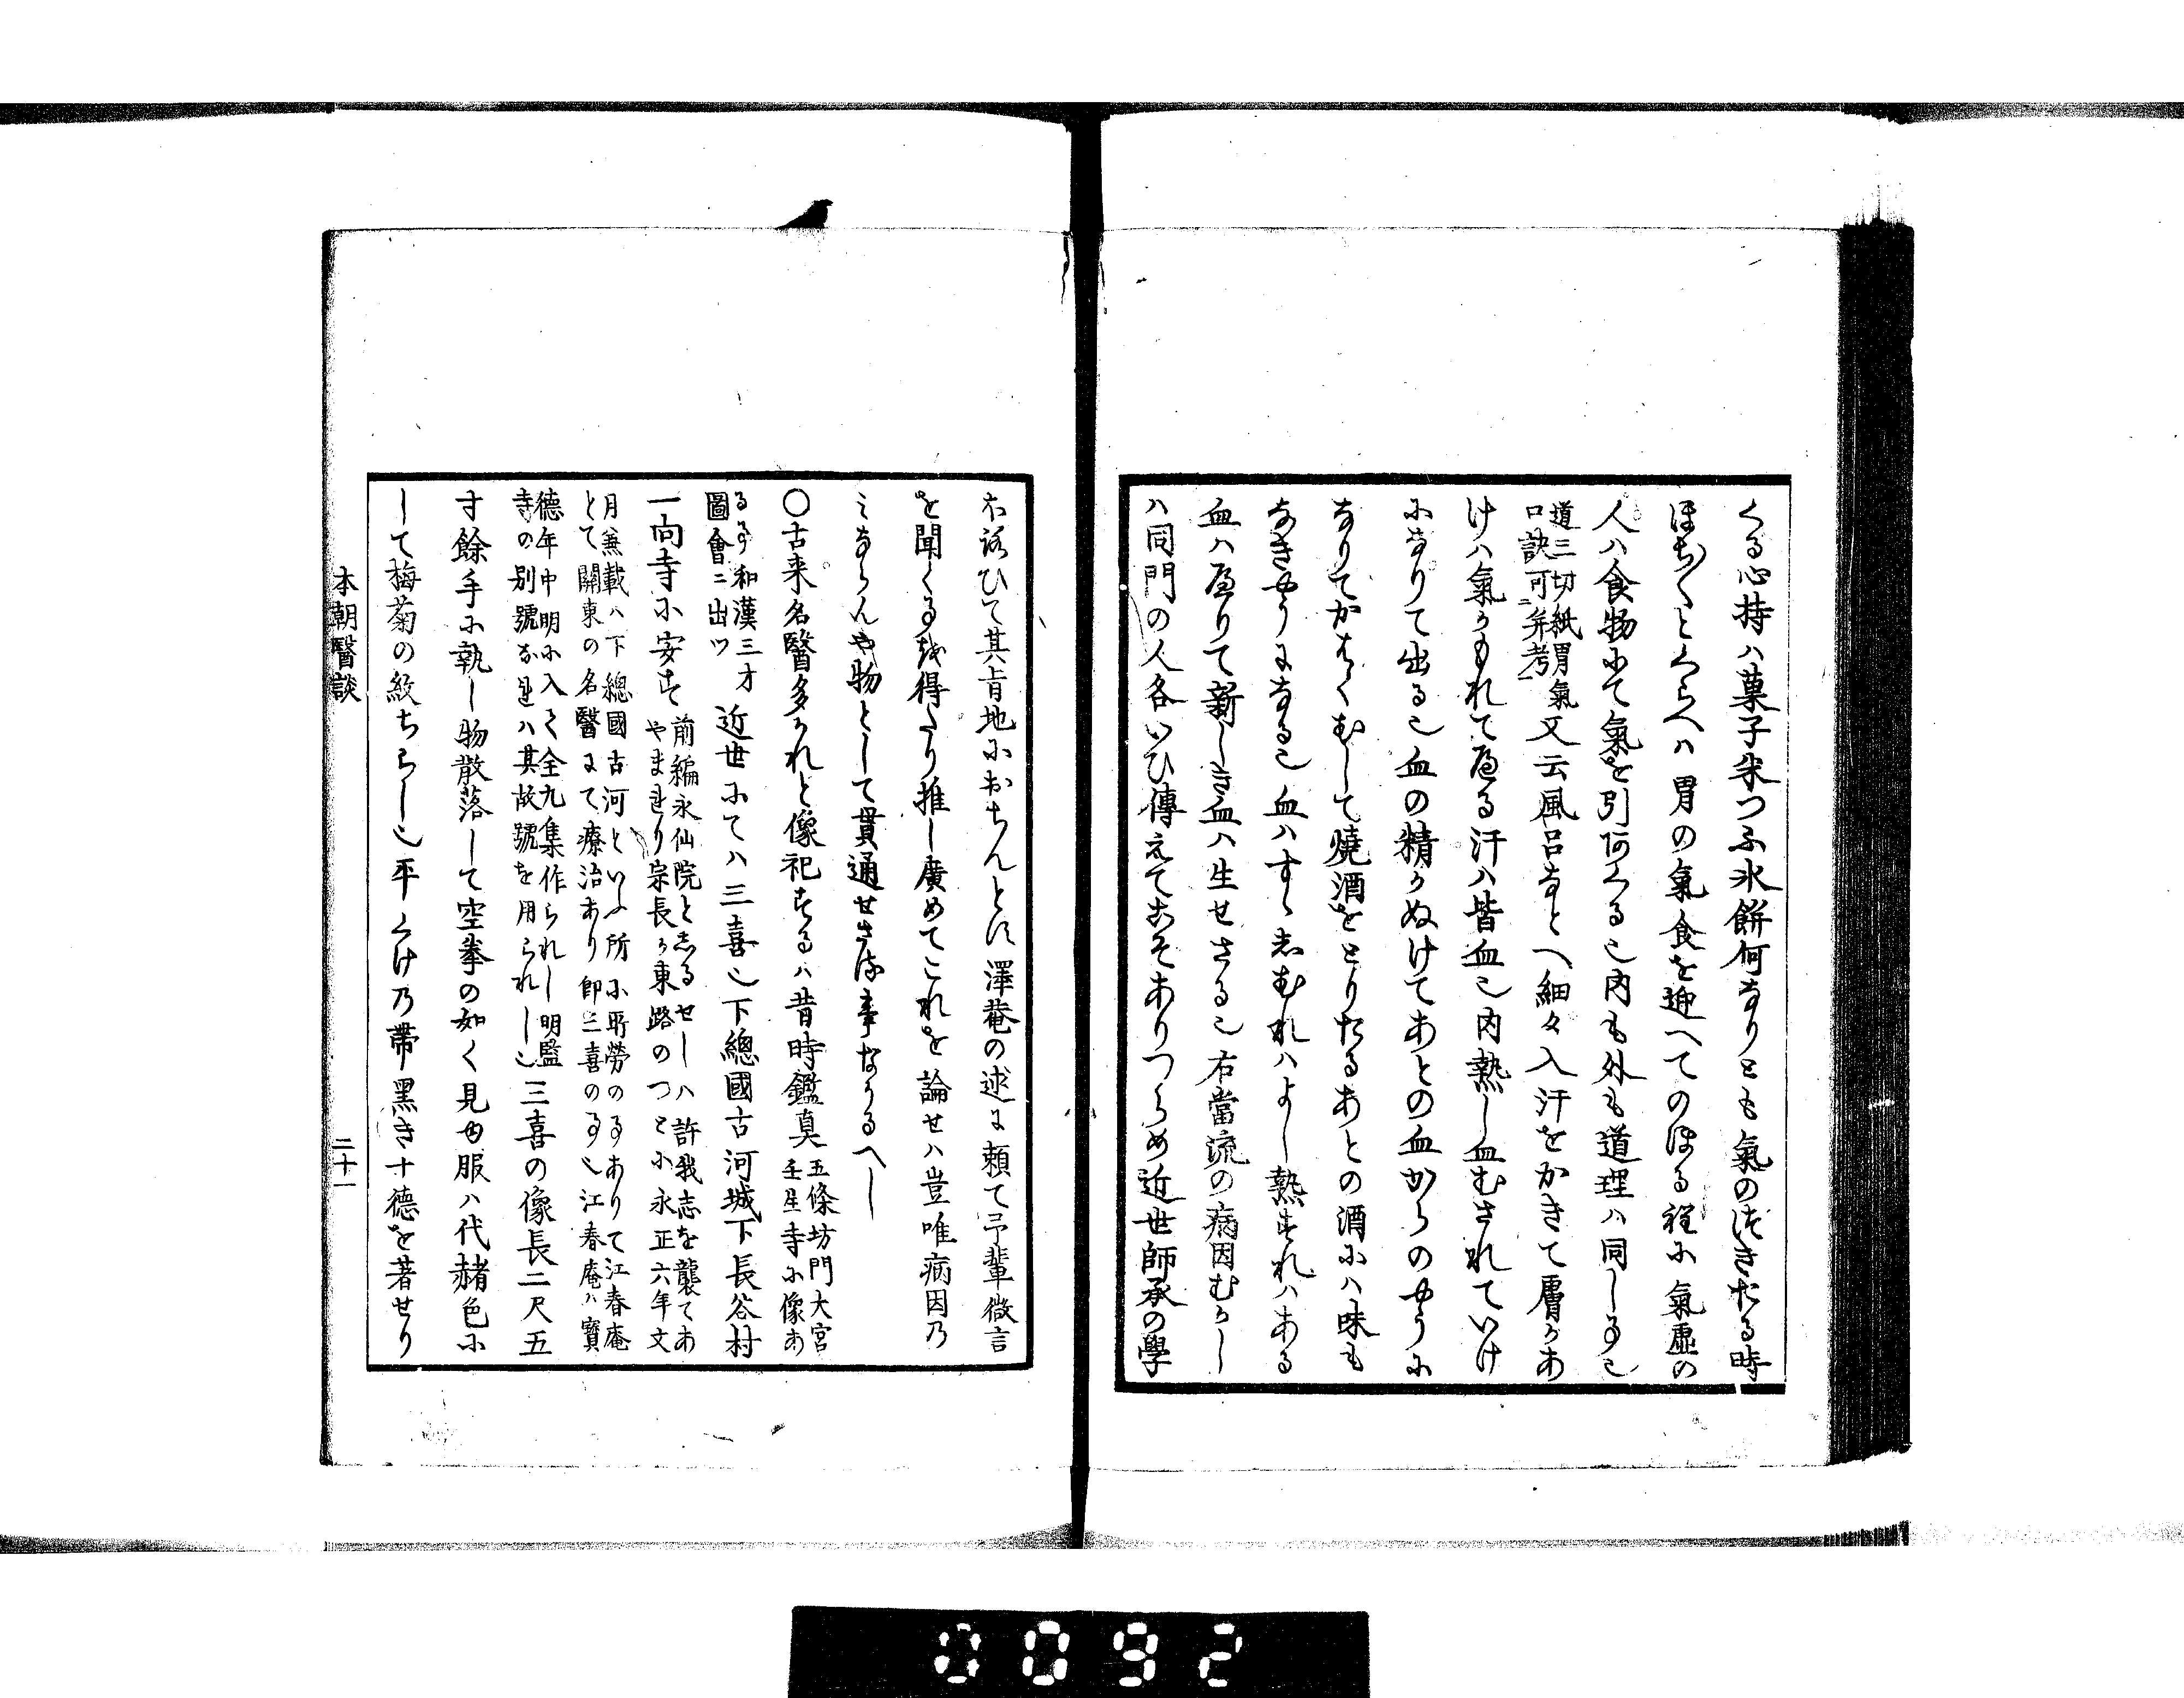 くる心持ハ菓子米つふ氷餅何なりとも氣のつきたる時
ほち〳〵とくらへハ胃の氣食を迎へてのほる程に氣虚の
人ハ食物にて氣を引てくる也内も外も道理ハ同しる事也
道三切紙胃氣
口訣可ニ弁考一
又云風呂なとへ細々入汗をかきて膚かあ
けハ氣かもれて出る汗ハ皆血也内熱し血むされていけ
になりて出る也血の精かぬけてあとの血からのやうに
なりてかろくむして燒酒をとりたるあとの酒にハ味も
なきやうになる也血ハすゝしむれハよし熱すれハある
血ハ減りて新しき血ハ生せさる也右當流の病因むかし
ハ同門の人各いひ傳えてこそありつらめ近世師承の學
衣鉢ひて其肯地におちんとす澤菴の述に頼て予輩微言
を聞くる越得たり推し廣めてこれを論せハ豈唯病因乃
ミならんや物として貫通せさる事なかるへし
〇古来名醫多かれと像祀するハ昔時鑑真
五條坊門大宮
壬生寺に像あ
る事和漢三才
圖會ニ出ツ
近世にてハ三喜也下總國古河城下長谷村
一向寺に安す
前編永仙院としるせしハ許我志を襲てあ
やまれり宗長か東路のつとに永正六年文
月兼載ハ下總國古河といふ所に所勞の事ありて江春庵
とて關東の名醫にて療治あり即三喜の事也江春庵ハ寶
德年中明に入て全九集作られし明監
寺の別號なれハ其故號を用られし也
三喜の像長二尺五
寸餘手に執し物散落して空拳の如く見ゆ服ハ代赭色に
して梅菊の紋ちらし也平くけ乃帶黑き十德を著せり
本朝醫談
二十一
0092